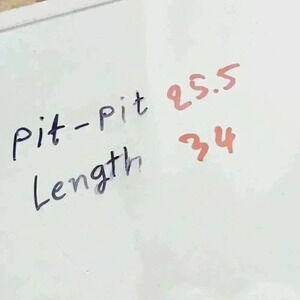 Pit-Pit 25.5
Length 34